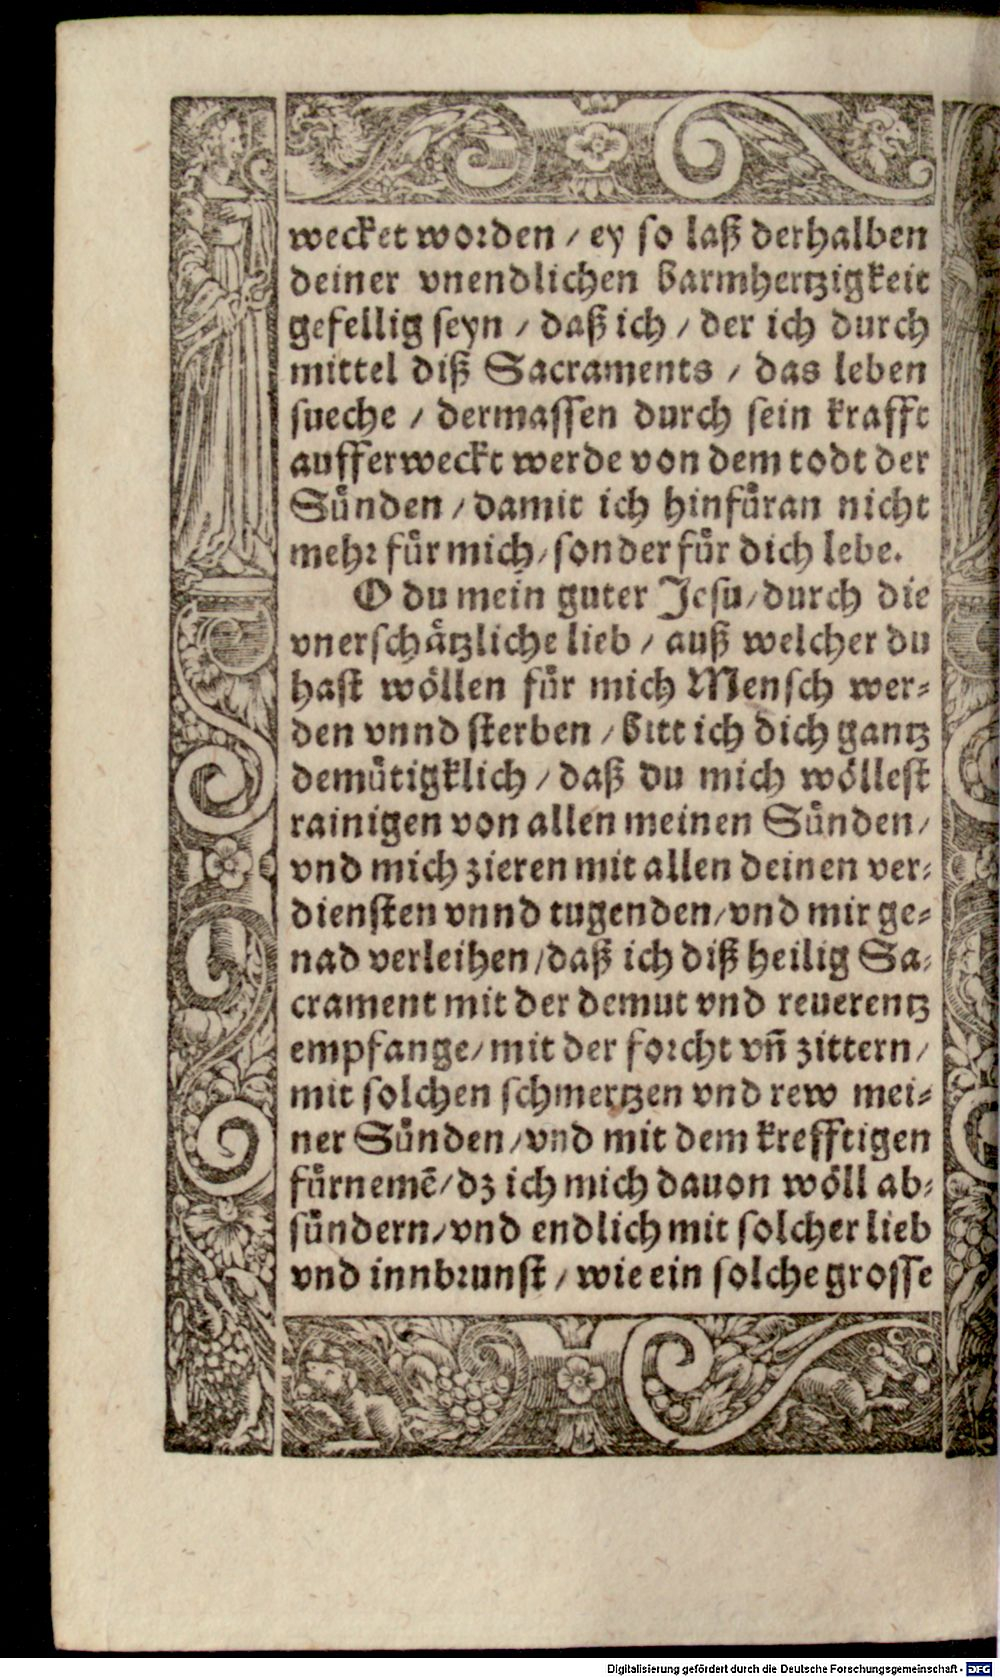 wecket worden / ey so laß derhalben
deiner vnendlichen barmhertzigkeit
gefellig seyn / daß ich / der ich durch
mittel diß Sacraments / das leben
sueche / dermassen durch sein krafft
aufferweckt werde von dem todt der
Sünden / damit ich hinfüran nicht
mehr für mich / sonder für dich lebe.
O du mein guter Jesu / durch die
vnerschätzliche lieb / auß welcher du
hast wöllen für mich Mensch wer-
den vnnd sterben / bitt ich dich gantz
demütigklich / daß du mich wöllest
rainigen von allen meinen Sünden /
vnd mich zieren mit allen deinen ver-
diensten vnnd tugenden / vnd mir ge-
nad verleihen / daß ich diß heilig Sa-
crament mit der demut vnd reuerentz
empfange / mit der forcht vñ zittern /
mit solchen schmertzen vnd rew mei-
ner Sünden / vnd mit dem krefftigen
fürnemē / dz ich mich dauon wöll ab-
sündern / vnd endlich mit solcher lieb
vnd innbrunst / wie ein solche grosse
Digitalisierung gefördert durch die Deutsche Forschungsgemeinschaft - DFG